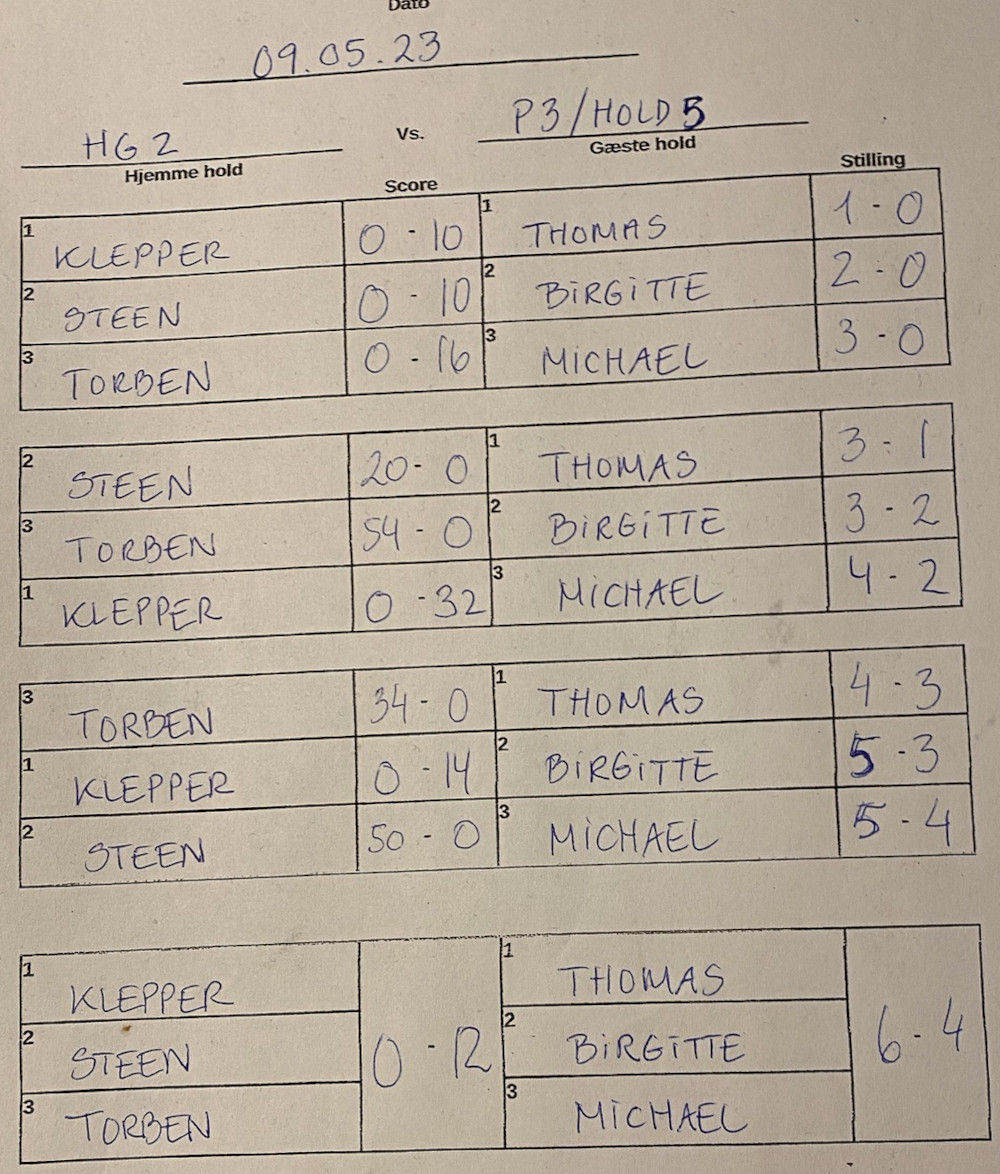 Dato
09.05.23
HG 2 Vs. P3/HOLD 5
Hjemme hold Gæste hold
Score Stilling
1 KLEPPER 0 - 10 1 THOMAS 1 - 0
2 STEEN 0 - 10 2 BIRGITTE 2 - 0
3 TORBEN 0 - 16 3 MICHAEL 3 - 0
2 STEEN 20 - 0 1 THOMAS 3 - 1
3 TORBEN 54 - 0 2 BIRGITTE 3 - 2
1 KLEPPER 0 - 32 3 MICHAEL 4 - 2
3 TORBEN 34 - 0 1 THOMAS 4 - 3
1 KLEPPER 0 - 14 2 BIRGITTE 5 - 3
2 STEEN 50 - 0 3 MICHAEL 5 - 4
1 KLEPPER 1 THOMAS
2 STEEN 0 - 12 2 BIRGITTE 6 - 4
3 TORBEN 3 MICHAEL